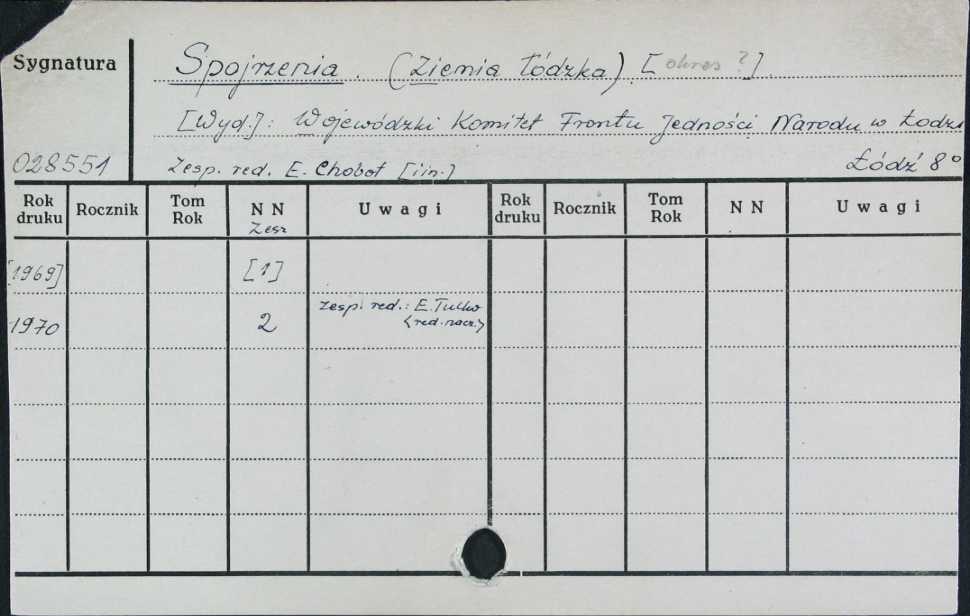 Sygnatura
Spojrzenia. (Ziemia Łódzka) [okres ?]
[Wyd.]: Wojewódzki Komitet Frontu Jedności Narodu w Łodzi
028551
Zesp. red. E. Chobot [i in.]
Łódź 8°
Rok druku Rocznik Tom Rok N N Uwagi Rok druku Rocznik Tom Rok N N Uwagi
Zesz
[1969] [1]
1970 2 Zesp. red.: E. Tulko
<red. nacz.>